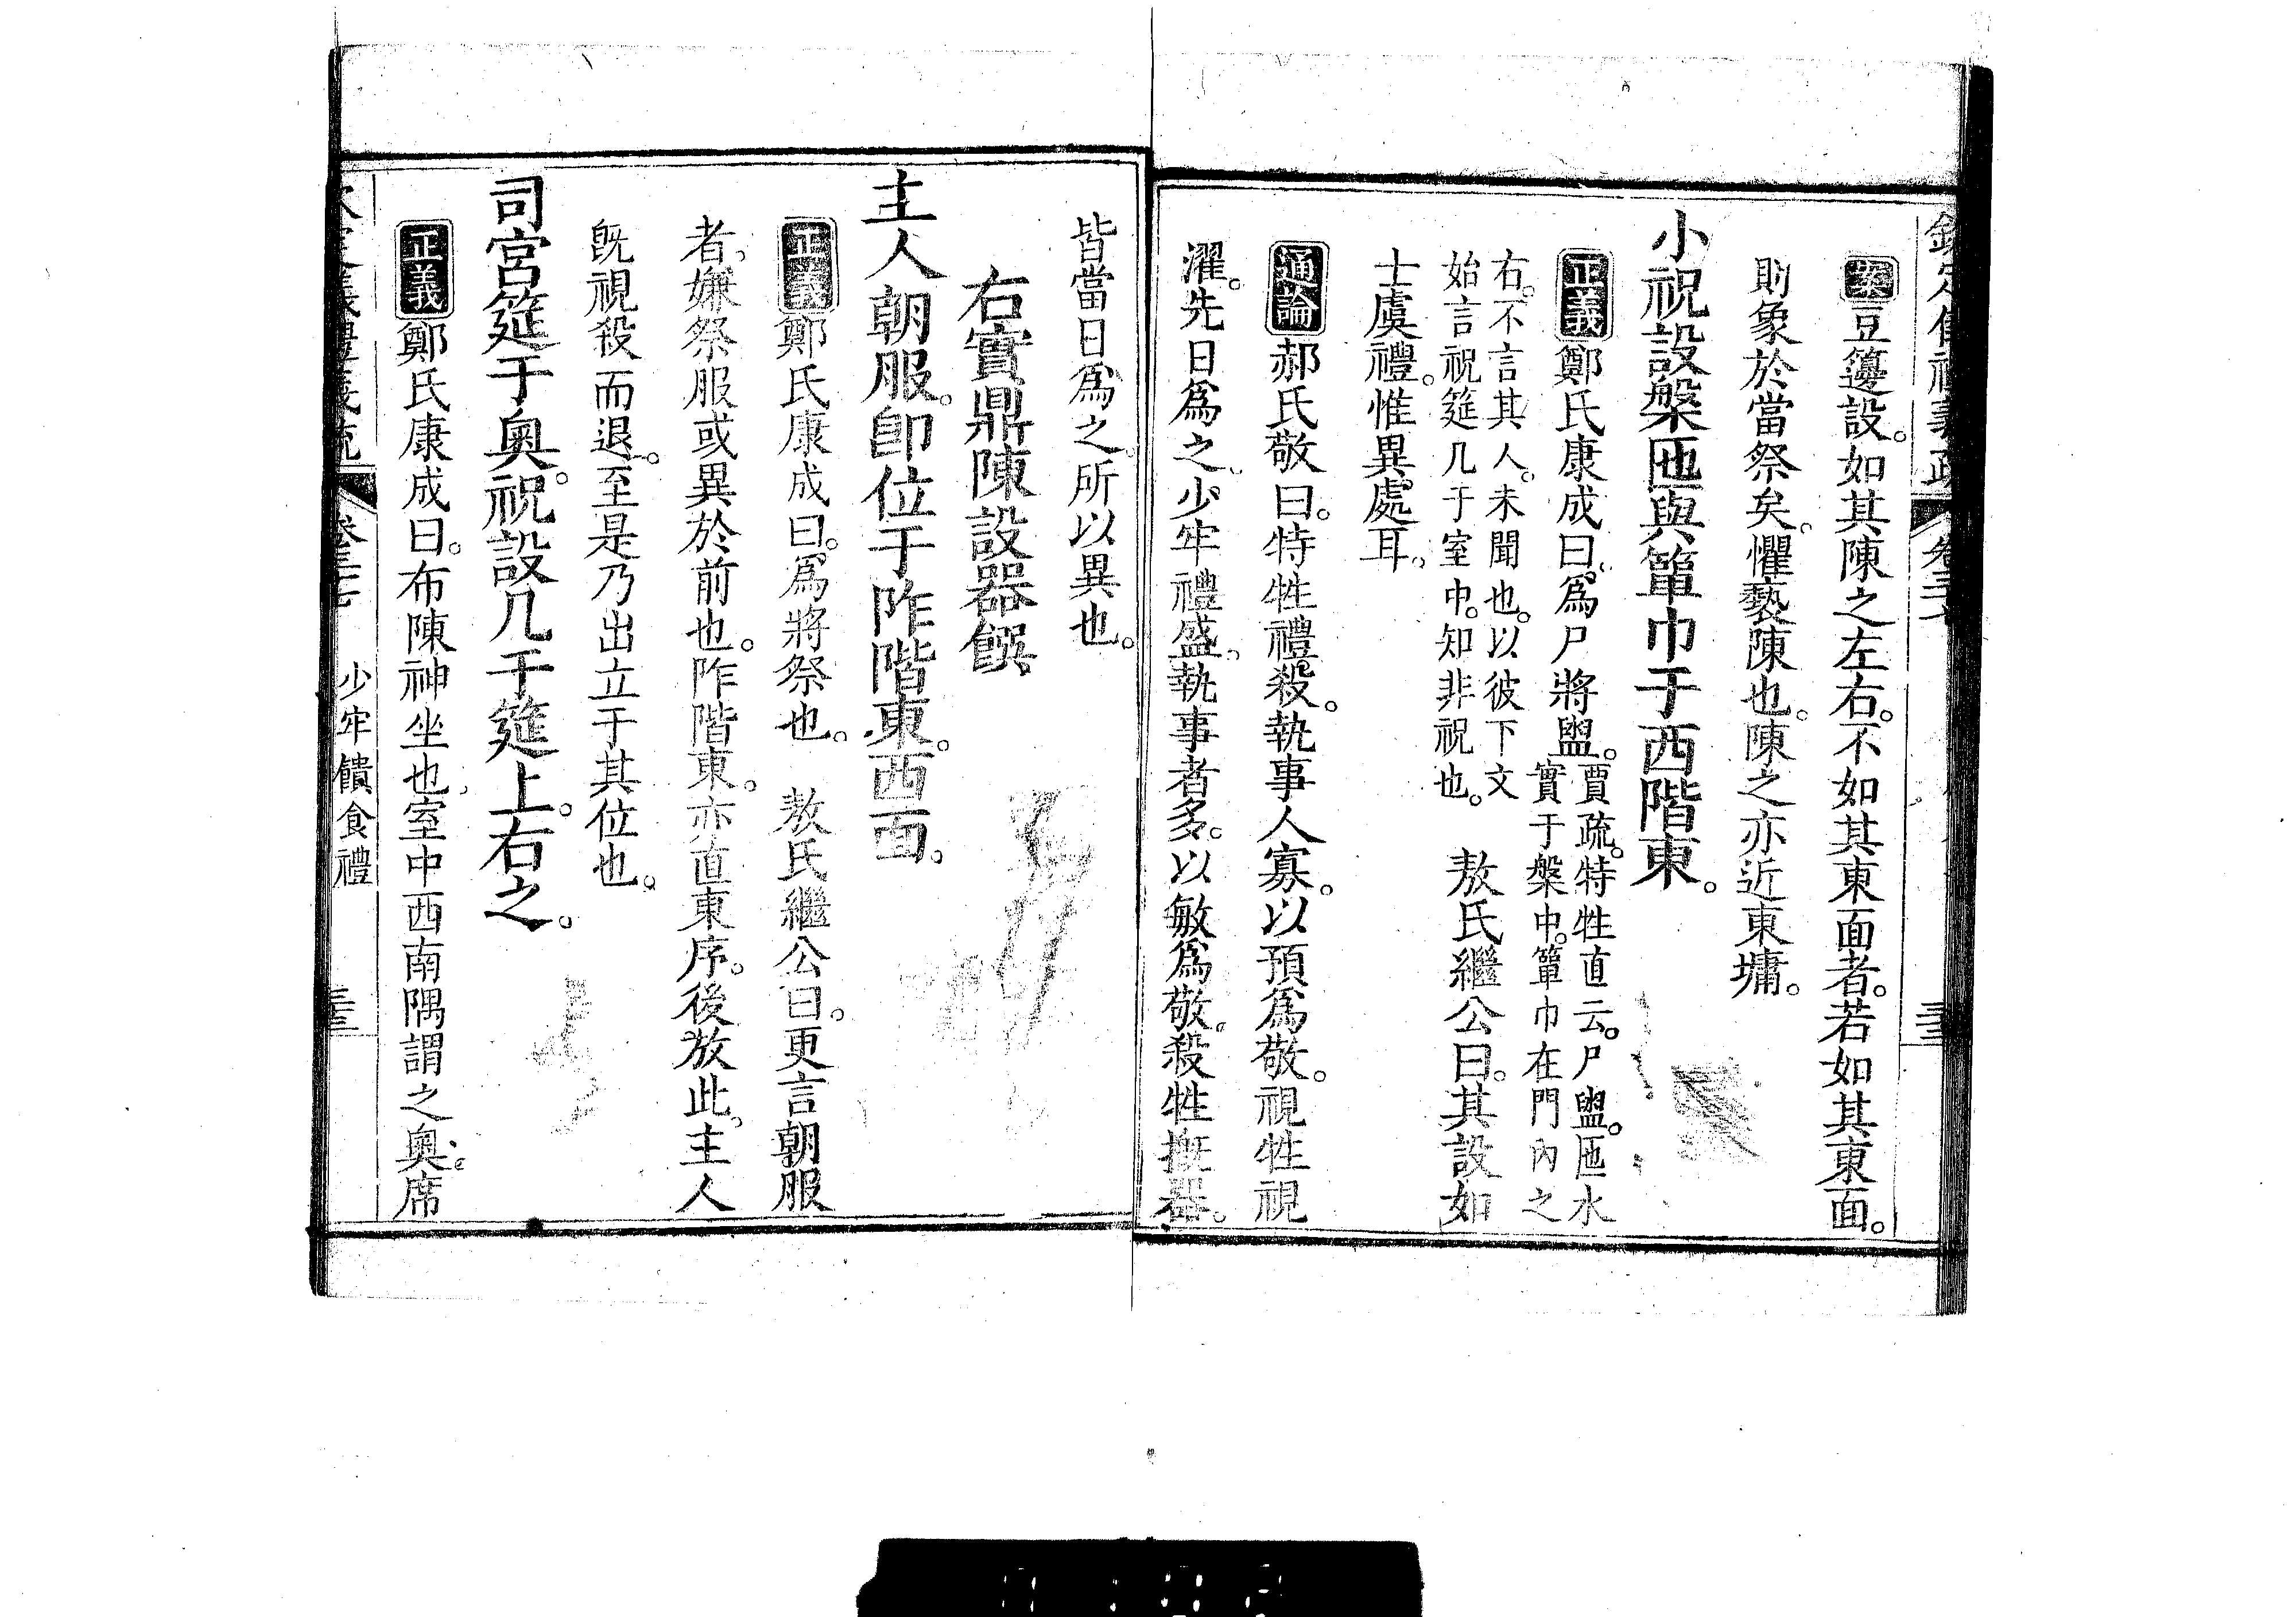 案豆籩設。如其陳之左右。不如其東面者。若如其東面。
則象於當祭矣。懼褻陳也。陳之亦近東墉。
小祝設槃匜與簞巾于西階東。
正義鄭氏康成曰。爲尸將盥。賈疏。特牲直云。尸盥。匜水
實于槃中。簞巾在門內之
右。不言其人。未聞也。以彼下文
始言祝筵几于室中。知非祝也。 敖氏繼公曰。其設如
士虞禮。惟異處耳。
通論郝氏敬曰。特牲禮殺。執事人寡。以預爲敬。視牲視
濯。先日爲之。少牢禮盛。執事者多。以敏爲敬。殺牲摡器。
皆當日爲之。所以異也。
右實鼎陳設器饌
主人朝服。卽位于阼階東。西面。
正義鄭氏康成曰。爲將祭也。 敖氏繼公曰。更言朝服
者。嫌祭服或異於前也。阼階東。亦直東序。後放此。主人
旣視殺而退。至是乃出立于其位也。
司宮筵于奧。祝設几于筵上。右之。
正義鄭氏康成曰。布陳神坐也。室中西南隅謂之奧。席
卷三七 少牢饋食禮 三三